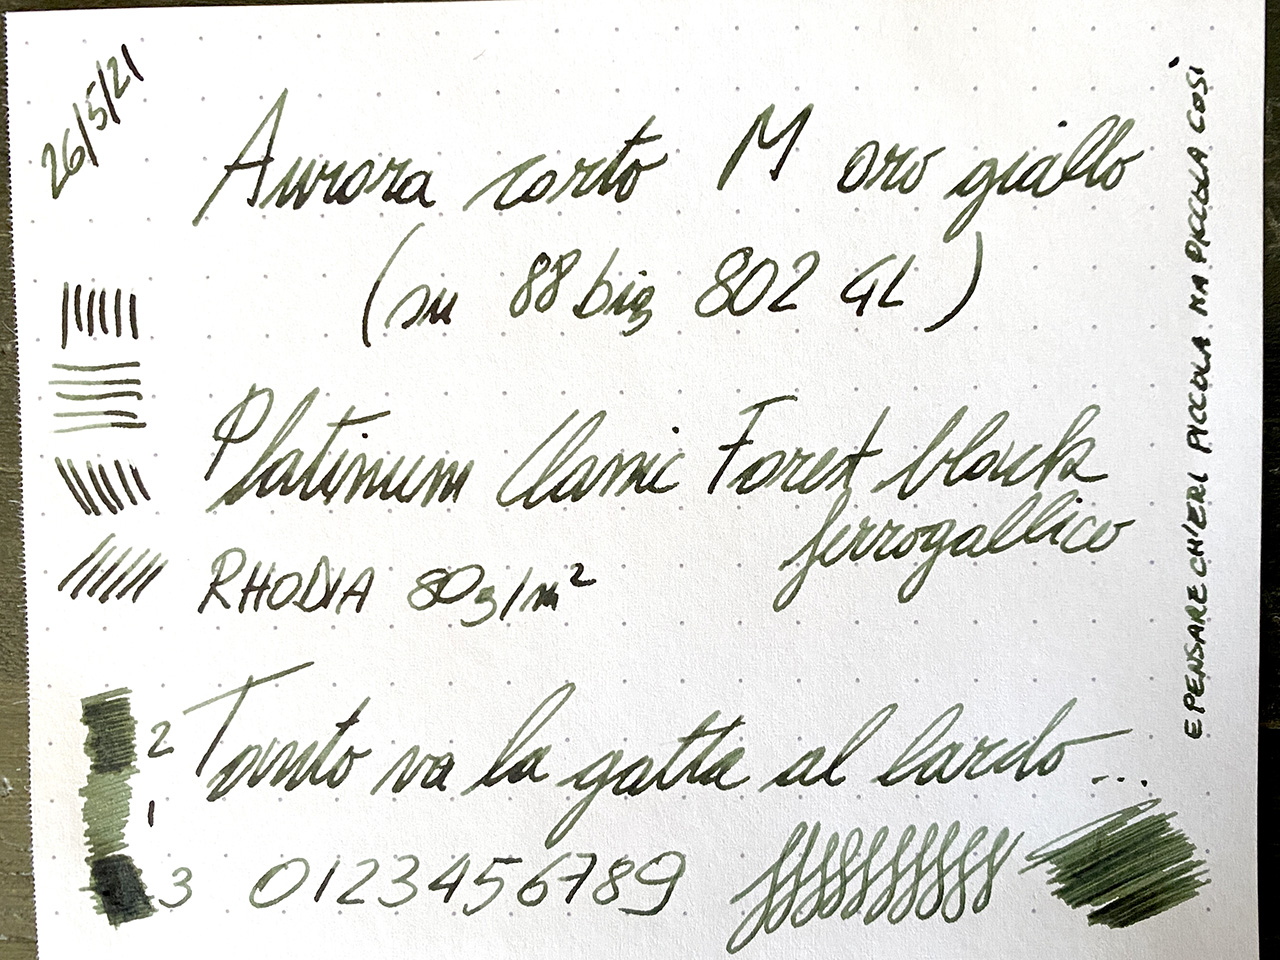 26/5/21
Aurora corto M oro giallo
(su 88 big 802 GL)
Platinum Classic Forest black
ferrogallico
RHODIA 80g/m²
Tanto va la gatta al lardo...
2
1
3
0123456789
E PENSARE CH'ERI PICCOLA MA PICCOLA COSÌ